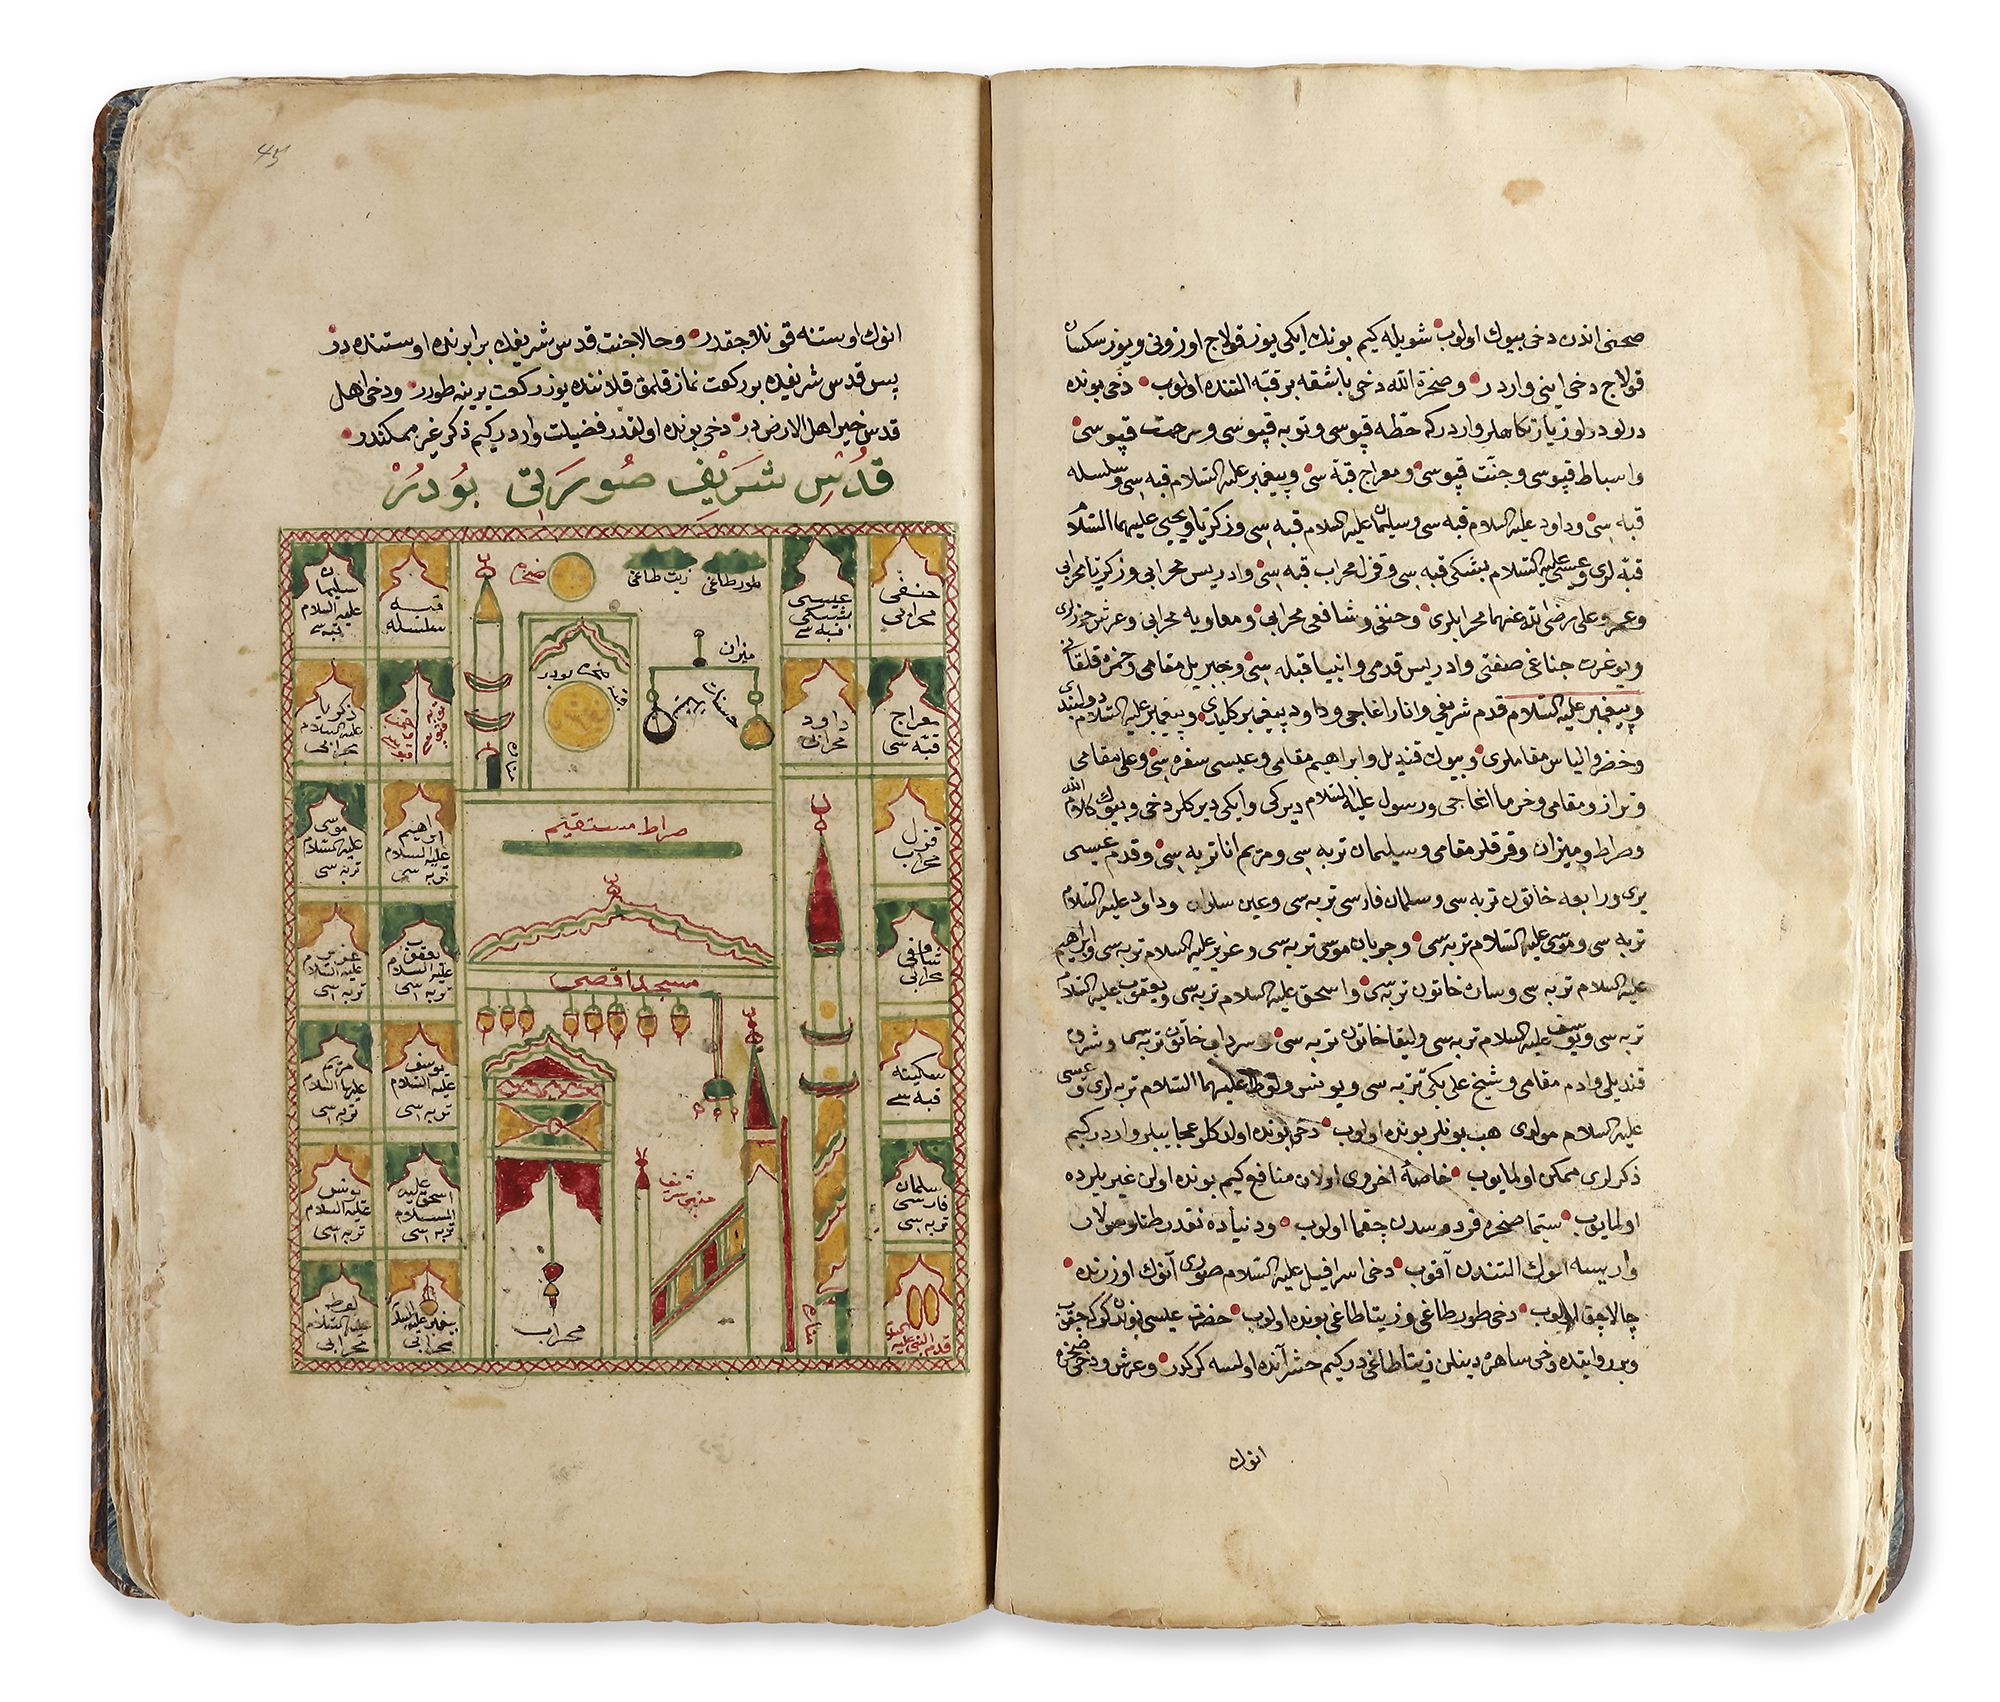 صحنی اندن دخی بیوك اولوب شویله کیم بونك ایکی یوز قولاج اوزونی و یوز سکسان
قولاج دخی اینی واردر و صخرة الله دخی باشقه بر قبه التنده اولوب دخی بونده
درلو درلو زیارتکاهلر واردر که حطه قپوسی و توبه قپوسی و رحمت قپوسی
و اسباط قپوسی و جنت قپوسی و معراج قبه سی و پیغمبر علیه السلام قبه سی و سلسله
قبه سی و داود علیه السلام قبه سی و سلیمان علیه السلام قبه سی و زکریا و یحیی علیهما السلام
قبه لری و عیسی علیه السلام بشکی قبه سی و قزل محراب قبه سی و ادریس محرابی و زکریا محرابی
و عمر و علی رضی الله عنهما محرابلری و حنفی و شافعی محرابی و معاویه محرابی و عرش
و ادریس قدمی و انبیا قبله سی و جبریل مقامی و حمزه قلقانی
و پیغمبر علیه السلام قدم شریفی و انار اغاجی و داود پیغمبر کلیدی و پیغمبر علیه السلام
و خضر و الیاس مقاملری و بیوك قندیل و ابراهیم مقامی و عیسی سفره سی و علی مقامی
و ترازو مقامی و خرما اغاجی و رسول علیه السلام دیرکی و ایکی دیرکلر دخی و بیوك کلام الله
و صراط و میزان و قرقلر مقامی و سلیمان تربه سی و مریم انا تربه سی و قدم عیسی
یری و رابعه خاتون تربه سی و سلمان فارسی تربه سی و عین سلوان و داود علیه السلام
تربه سی و موسی علیه السلام تربه سی و چوبان موسی تربه سی و عزیر علیه السلام تربه سی و ابراهیم
علیه السلام تربه سی و ساره خاتون تربه سی و اسحق علیه السلام تربه سی و یعقوب علیه السلام
تربه سی و یوسف علیه السلام تربه سی و لیقا خاتون تربه سی و خاتون تربه سی
قندیلی و ادم مقامی و شیخ علی بکی تربه سی و یونس و لوط علیهما السلام تربه لری و عیسی
علیه السلام مولدی هب بونلر بونده اولوب دخی بونده اولدکلو عجایبلر واردر کیم
ذکرلری ممکن اولمایوب خاصة اخروی اولان منافع کیم بونده اولن غیر یلرده
اولمایوب سیما صخره فردوسدن چقما اولوب و دنیاده نقدر طتلو صولر
واریسه انوك التندن آقوب دخی اسرافیل علیه السلام صوری آنوك اوزرنده
چالاجق اولوب دخی طور طاغی و زیتا طاغی بونده اولوب حضرت عیسی بوندن کوکه چقوب
و بر روایتده دخی ساهره دینلن زیتا طاغی در کیم حشر آنده اولسه کرکدر و عرش دخی صخره
انوك
45
انوك اوستنه قونلاجقدر و حالا جنت قدس شریفك برابرنده اوستنده در
پس قدس شریفده بر رکعت نماز قلمق قلاننده یوز رکعت یرینه طورر و دخی اهل
قدس خیر اهل الارض در دخی بونده اولقدر فضیلت واردر کیم ذکر غیر ممکندر
قدس شریف صورتی بودر
حنفی محرابی
عیسی بشیکی قبه سے
طور طاغی
زیت طاغی
صخره
قبه سلسله
سلیمان علیه السلام قبه سے
معراج قبه سی
داود محرابی
میزان
حسنات
صخره بودر
قبه
مناره
توبه قپوسی
زکریا علیه السلام محرابی
قزل محراب
صراط مستقیم
ابراهیم علیه السلام تربه سی
موسی علیه السلام تربه سی
شافعی محرابی
مسجد اقصی
یعقوب علیه السلام تربه سی
عزیر علیه السلام تربه سی
سکینه قبه سے
یوسف علیه السلام تربه سی
مریم علیها السلام تربه سی
سلمان فارسی تربه سی
منبر شریف
اسحق علیه السلام تربه سی
یونس علیه السلام تربه سی
قدم النبی علیه
مناره
محراب
پیغمبر علیه السلام محرابی
لوط علیه السلام محرابی